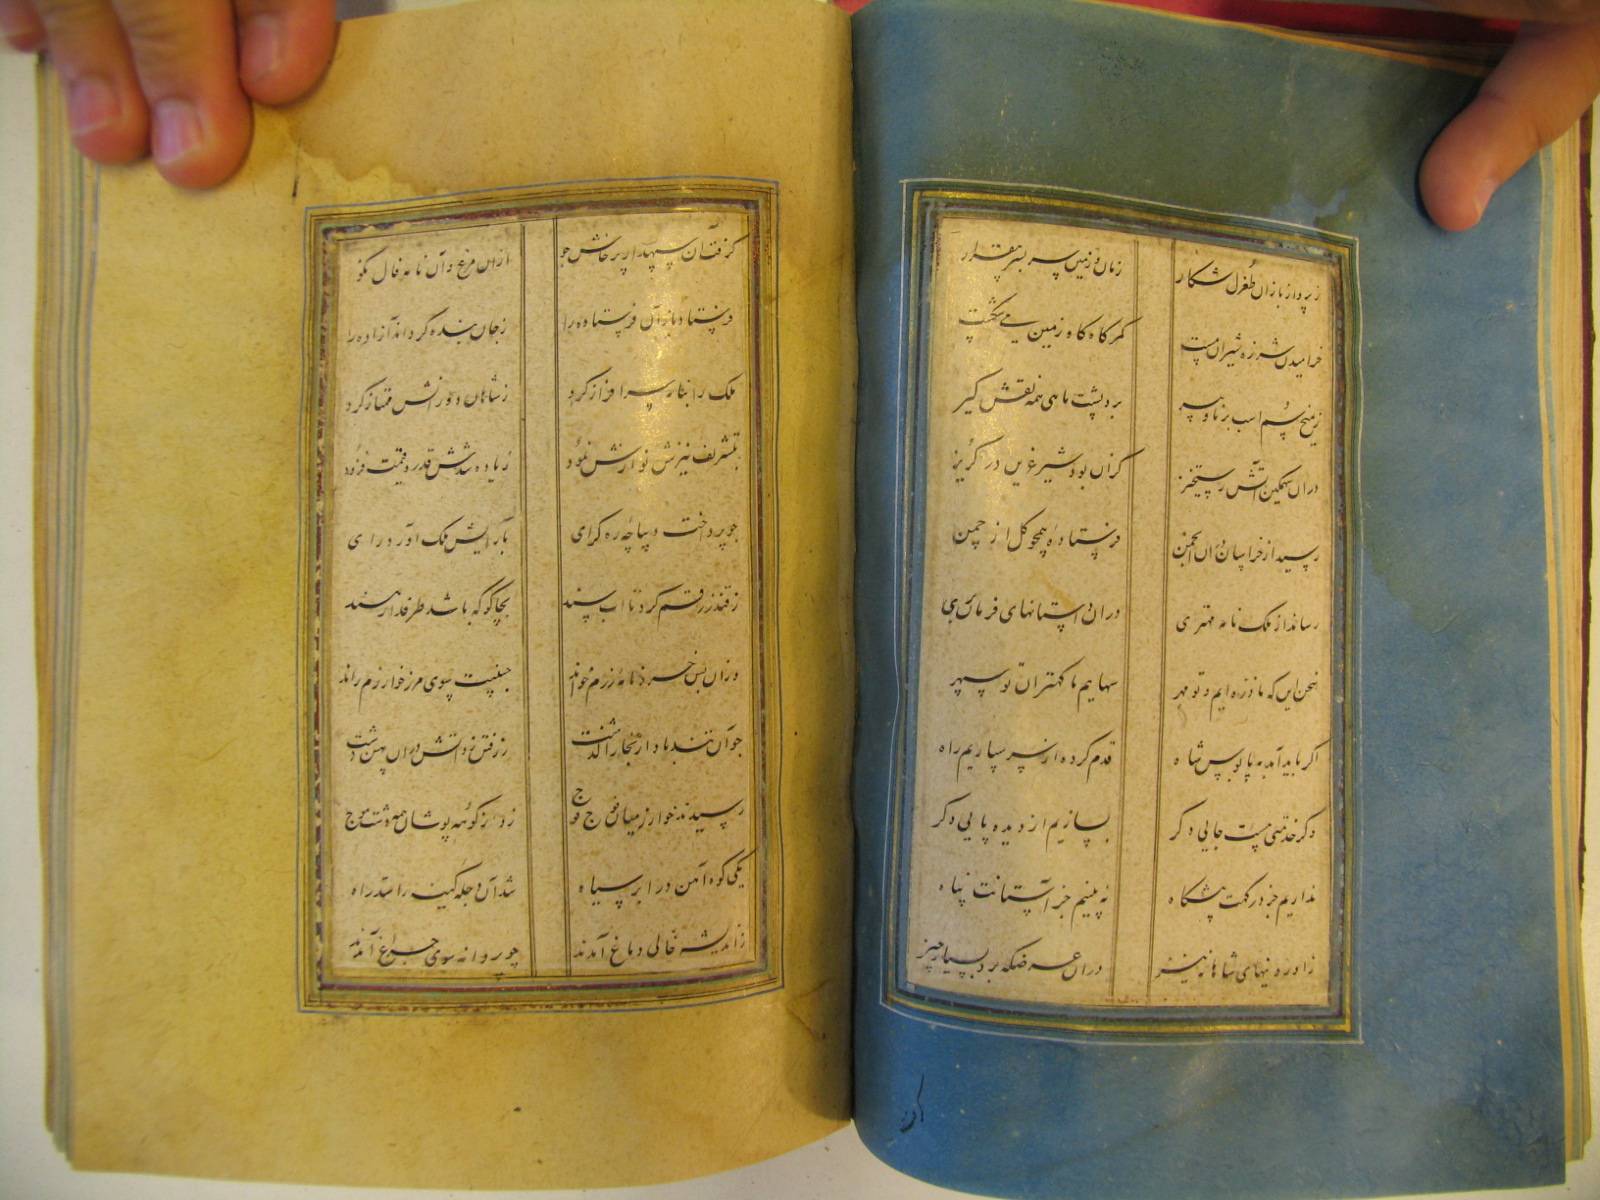 ز پرواز بازان طغرل شکار
زمان و زمین پر سر بیقرار
خرامیدن شرزه شیران مست
کمرگاه گاو زمین می شکست
ز میخ سم اسب بر ماه و مهر
بر پشت ماهی همه نقش گیر
دران سهمگین آتش رستخیز
کزان بود شیر عرین در گریز
رسید از خراسان دران انجمن
فرستاده همچو گل از چمن
رساند از ملک نامه مهتری
دران داستانهای فرمان بری
سخن این که ما ذره ایم و تو مهر
سهاییم ما کهتران تو سپهر
اگر باید آمد به پابوس شاه
قدم کرده از سر سپاریم راه
دگر خدمتی هست جایی دگر
بسازیم از دیده پایی دگر
نداریم جز درگهت پیشگاه
نه بینیم جز آستانت پناه
ز آوردنیهای شاهانه نیز
دران عرضگه برد بسیار چیز
گرفت آن سپهدار پرخاش جو
ازان مرغ و آن نامه فال نکو
فرستاد باز آن فرستاده را
ز جان بنده گرداند آزاده را
ملک را بنامه سرافراز کرد
ز شاهان دورانش ممتاز کرد
بتشریف نیزش نوازش نمود
زیاده شدش قدر و قیمت فزود
چو پرداخت دیباچه ره گرای
بآرایش ملک آورد رای
ز قندز رقم کرد تا آب سند
بجا گو که باشد طرفدار هند
وزان پس خسرو نامه رزم خواند
جنیبت سوی مرز خوارزم راند
چو آن تند باد از بخارا گذشت
ز رفتن فرو آتش دران پهن دشت
رسیدند خوارزمیان فوج فوج
زده از کوهه پوشان همه دشت موج
یکی کوه آهن در ابر سیاه
شد آن دجله کینه را سد راه
ز اندیشه خالی دماغ آمدند
چو پروانه سوی چراغ آمدند